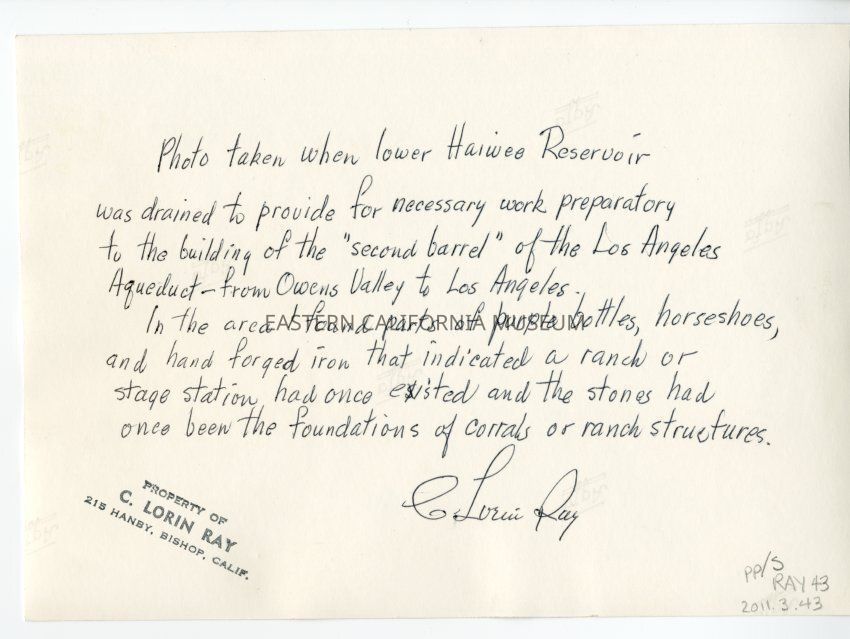 Photo taken when lower Haiwee Reservoir
was drained to provide for necessary work preparatory
to the building of the "second barrel" of the Los Angeles
Aqueduct - from Owens Valley to Los Angeles.
In the area I found parts of purple bottles, horseshoes,
EASTERN CALIFORNIA MUSEUM
and hand forged iron that indicated a ranch or
stage station, had once existed and the stones had
once been the foundations of corrals or ranch structures.
C Lorin Ray
PROPERTY OF
C. LORIN RAY
215 HANBY, BISHOP, CALIF.
PP/S
RAY 43
2011.3.43